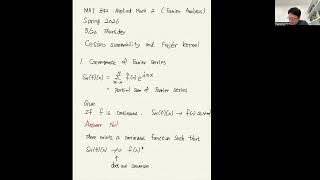 MAT 342 Applied Math 2 (Fourier Analysis)
Spring 2026
Thursday
Cesàro summability and Fejér kernel
1. Convergence of Fourier series
= partial sum of Fourier series
Que
If f is continuous, S_N(f)(x) → f(x) as N→∞
Answer No!
There exists a continuous function such that
S_N(f)(x) ↛ f(x)
does not converge